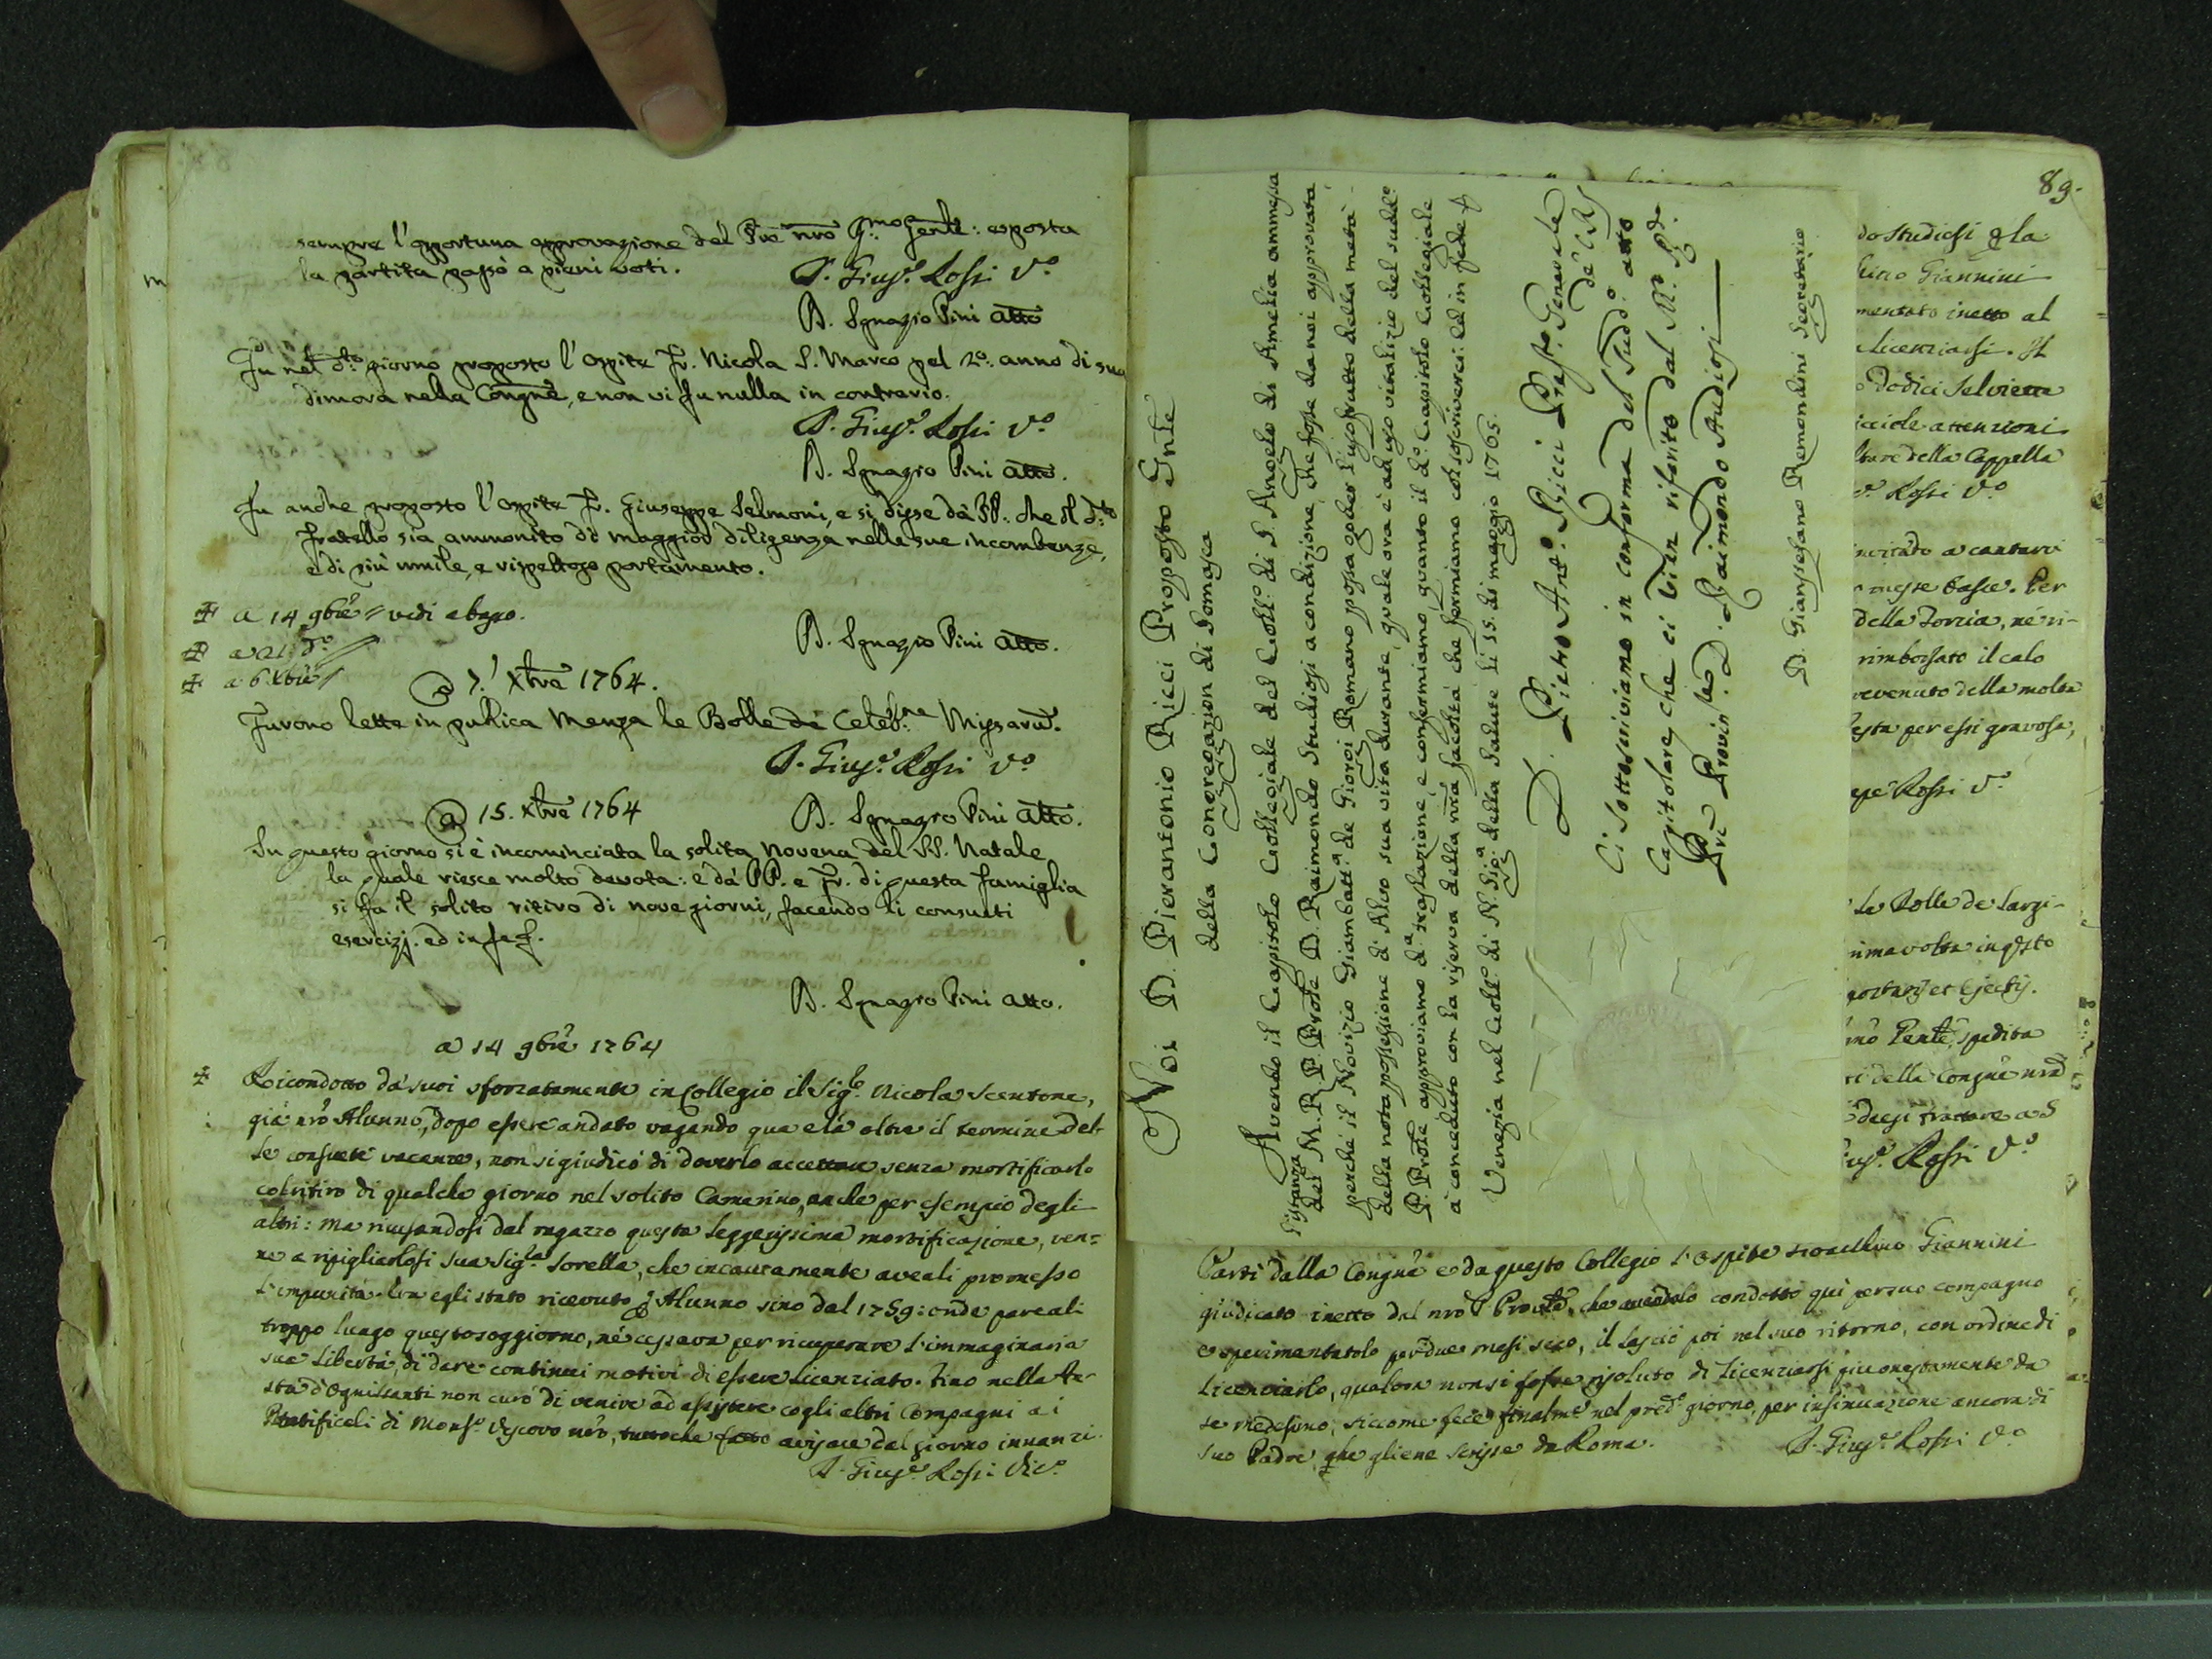 sempre l'opportuna approvazione del Pre nro Rmo Genle: esposta
la partita passò a pieni voti.
P. Giuse. Rossi Vo.
D. Ignazio Pini Atto
Fu nel do. giorno proposto l'ospite Fr. Nicola S. Marco pel 2o. anno di sua
dimora nella Congne, e non vi fu nulla in contrario.
P. Giuse. Rossi Vo.
D. Ignazio Pini Atto.
Fu anche proposto l'ospite Fr. Giuseppe Selmoni, e si disse da PP. che il do.
fratello sia ammonito di maggior diligenza nelle sue incombenze,
e di più umile, e rispettoso portamento.
a 14 9bre vedi abasso.
D. Ignazio Pini Atto.
a 21 do.
a 6 Xbre
a 7. Xbre 1764.
Furono lette in publica Menza le Bolle de Celebne Missarum.
P. Giuse. Rossi Vo.
D. Ignazio Pini Atto.
a 15. Xbre 1764
In questo giorno si è incominciata la solita Novena del SS. Natale
la quale riesce molto devota: e da PP. e Fr. di questa famiglia
si fa il solito ritiro di nove giorni, facendo li consueti
esercizj. ed in fe f.
D. Ignazio Pini Atto.
a 14 9bre 1764
Ricondotto da' suoi sforzatamente in Collegio il Sigr. Nicola Scentone,
già nro Alunno, dopo essere andato vagando qua e là oltre il termine del-
le consuete vacanze, non si giudicò di doverlo accettare senza mortificarlo
col ritiro di qualche giorno nel solito Camerino, anche per esempio degli
altri: ma ricusandosi dal ragazzo questa leggerissima mortificazione, ven-
ne a ripigliarlosi sua Siga. Sorella, che incautamente aveali promesso
l'impunità. Era egli stato ricevuto p Alunno sino dal 1759: onde pareali
troppo lungo questo soggiorno, nè cessava per ricuperare l'immaginaria
sua libertà, di dare continui motivi di essere licenziato. Fino nella Fe-
sta d'Ognissanti non curò di venire ad assistere cogli altri Compagni ai
Pontificali di Monsr. Vescovo nro, tuttoche fatto avisare dal giorno innanzi.
P. Giuse. Rossi Vic.
Noi D. Pierantonio Ricci Proposto Gnle
della Congregazion di Somasca
Avendo il Capitolo Collegiale del Collo. di S. Angelo di Amelia ammessa
l'istanza
del M. R. P. Prote D. Raimondo Studiosi a condizione, che fosse da noi approvata,
perchè il Novizio Giambatta. de Giorgi Romano possa goder l'usofrutto della metà
della nota possessione di Alvo sua vita durante, quale ora è ad uso vitalizio del sudo.
P. Prote approviamo da. traslazione, e confermiamo quanto il do. Capitolo Collegiale
à conceduto con la riserva della nra facoltà che fermiamo col soscriverci. Ed in fede &
Venezia nel Collo. di N. Siga. della Salute li 15. di maggio 1765.
D. Pietro Anto. Ricci Prepto. Generale
de' CRS
Ci sottoscriviamo in conforma del Suddo. atto
Capitolare che ci vien riferito dal M. R. do.
Pre Provinle D. Raimondo Studiosi
D. Gianstefano Remondini Secretario
89.
do Studiosi p la
Giannini
mentato inetto al
licenziarsi. Il
Dodici Salviette
attenzioni
ltare della Cappella
Rossi Vo.
invitato a cantarvi
messe basse. Per
della Torcia, nè ri-
rimborsato il calo
provenuto della molta
esta per essi gravosa,
pe Rossi Vo.
Le Bolle de Largi-
rima volta in qsto
et Ejectis.
Genle, spedita
ti della Congne nra
deesi trattare a S
Rossi Vo.
Partì dalla Congne e da questo Collegio l'Ospite Giannini
giudicato inetto dal nro P. Provle, che avendolo condotto quì per suo compagno
e sperimentatolo per due mesi seco, il lasciò poi nel suo ritorno, con ordine di
licenziarlo, qualora non si fosse risoluto di licenziarsi più onestamente da
se medesimo, siccome fece finalmte nel predo. giorno, per insinuazione ancora di
suo Padre, che gliene scrisse da Roma.
P. Giuse. Rossi Vo.